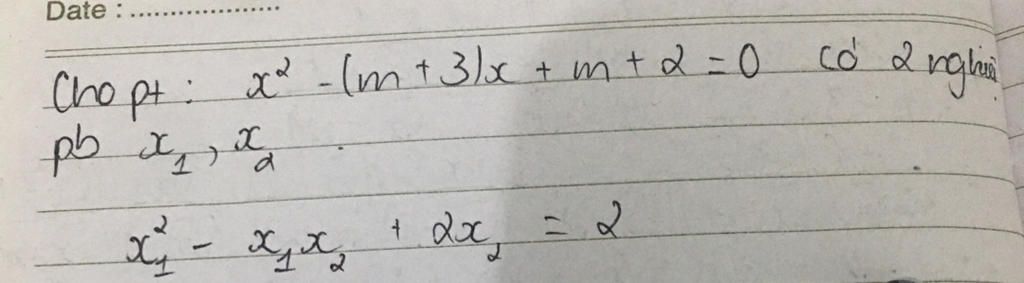 Date : ....................
Cho pt : x² - (m + 3)x + m + 2 = 0 có 2 nghiệm
pb x₁, x₂ .
x₁² - x₁x₂ + 2x₂ = 2